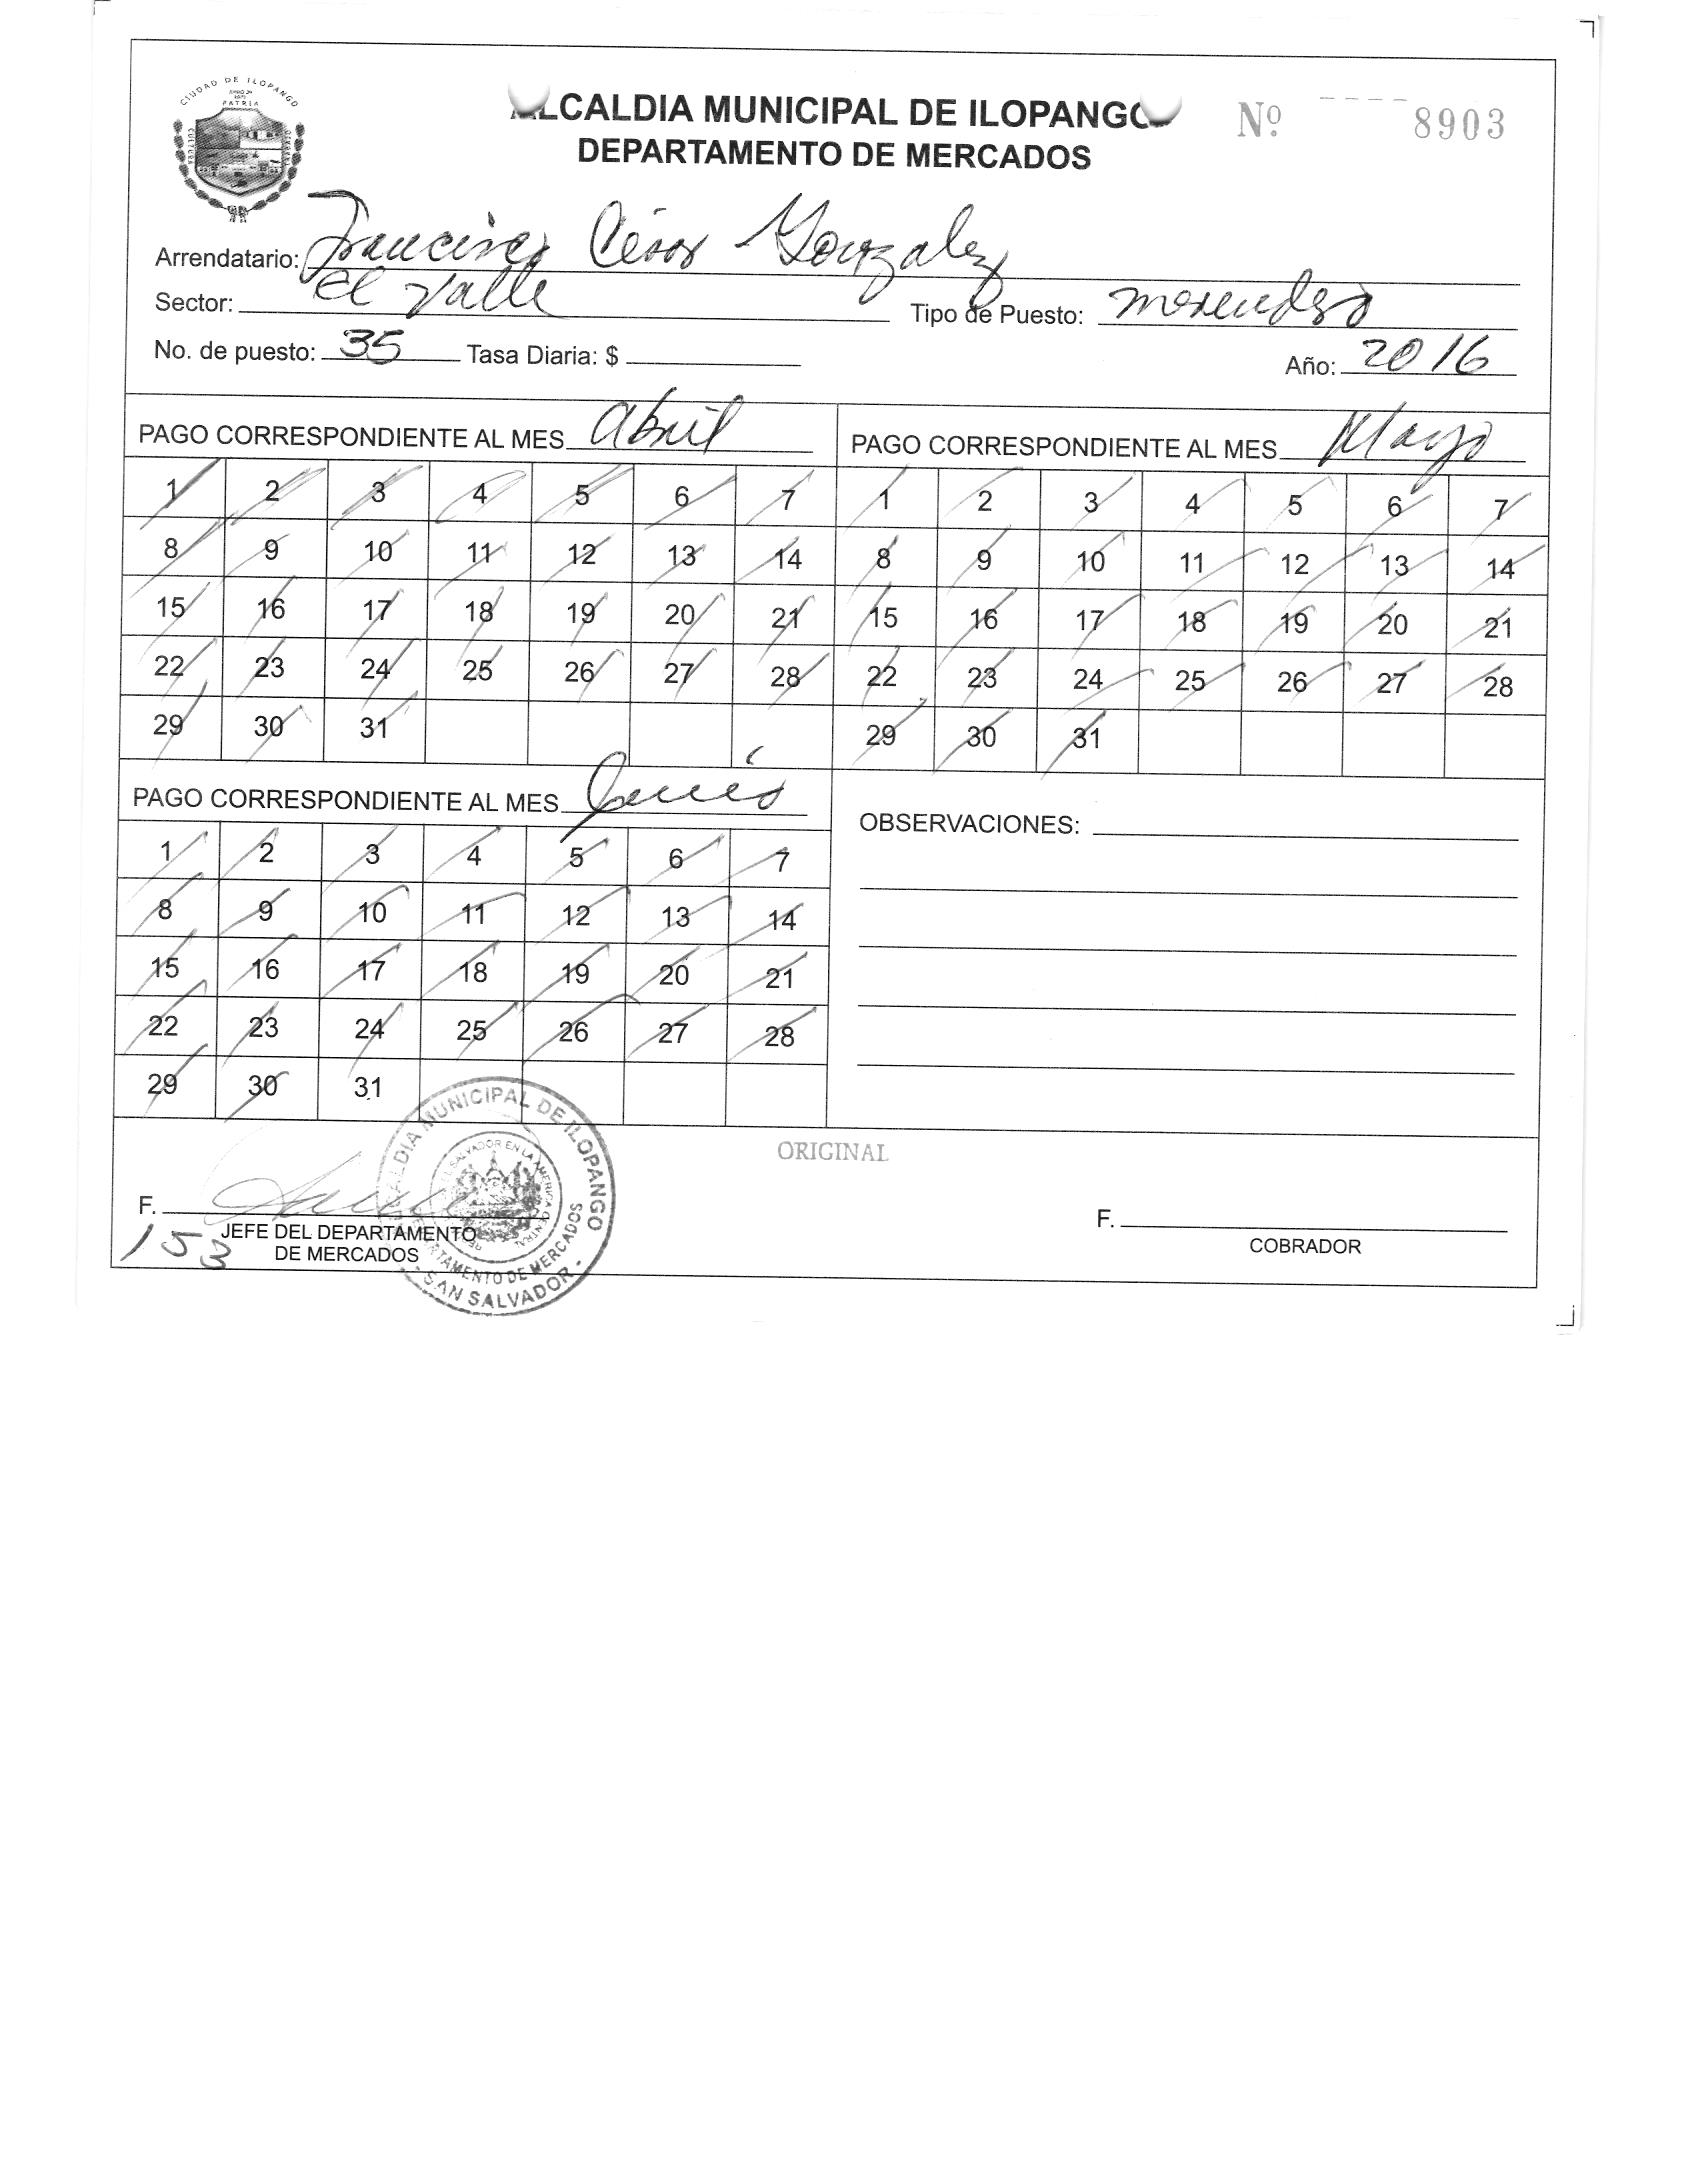 CIUDAD DE ILOPANGO
PATRIA
CULTURA
ALCALDIA MUNICIPAL DE ILOPANGO
DEPARTAMENTO DE MERCADOS
Nº 8903
Arrendatario: Francisco César Gonzalez
Sector: El Valle
Tipo de Puesto: merendero
No. de puesto: 35 Tasa Diaria: $
Año: 2016
PAGO CORRESPONDIENTE AL MES Abril
1 2 3 4 5 6 7
8 9 10 11 12 13 14
15 16 17 18 19 20 21
22 23 24 25 26 27 28
29 30 31
PAGO CORRESPONDIENTE AL MES Mayo
1 2 3 4 5 6 7
8 9 10 11 12 13 14
15 16 17 18 19 20 21
22 23 24 25 26 27 28
29 30 31
PAGO CORRESPONDIENTE AL MES Junio
1 2 3 4 5 6 7
8 9 10 11 12 13 14
15 16 17 18 19 20 21
22 23 24 25 26 27 28
29 30 31
OBSERVACIONES:
ORIGINAL
F.
JEFE DEL DEPARTAMENTO
DE MERCADOS
153
ALCALDIA MUNICIPAL DE ILOPANGO
DEPARTAMENTO DE MERCADOS
- SAN SALVADOR -
EL SALVADOR EN LA AMERICA CENTRAL
F.
COBRADOR